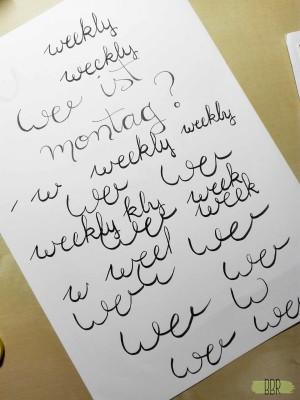 weekly
weekly
Wee ist
montag?
weekly weekly
w wee wee
weekly kly week
wee week
w weel wee
wee wee
wee w
wee wee
BBR